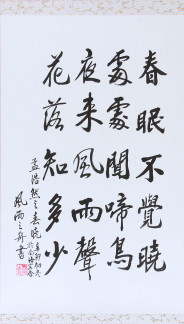 春眠不覺曉
處處聞啼鳥
夜来風雨聲
花落知多少
孟浩然之春曉
風雨之舟書